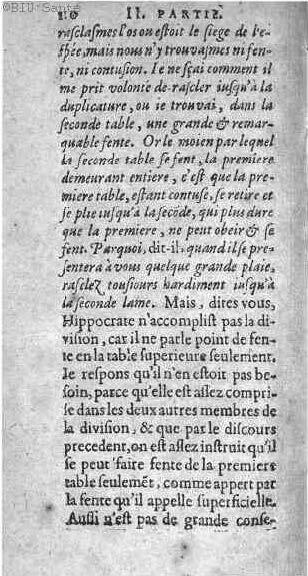 ©BIU Santé
10 II. PARTIE
rasclasmes l'os ou estoit le siege de l'es-
pée, mais nous n'y trouvasmes ni fen-
te, ni contusion. Ie ne sçai comment il
me prit volonté de rascler iusqu'à la
duplicature, ou ie trouvai, dans la
seconde table, une grande & remar-
quable fente. Or le moien par lequel
la seconde table se fent, la premiere
demeurant entiere, c'est que la pre-
miere table, estant contuse, se retire et
se plie iusqu'à la secõde, qui plus dure
que la premiere, ne peut obeir & se
fent. Parquoi, dit-il, quand il se pre-
sentera à vous quelque grande plaie,
rasclez tousiours hardiment iusqu'à
la seconde lame. Mais, dites vous,
Hippocrate n'accomplist pas la di-
vision, car il ne parle point de fen-
te en la table superieure seulement.
Ie respons qu'il n'en estoit pas be-
soin, parce qu'elle est assez compri-
se dans les deux autres membres de
la division, & que par le discours
precedent, on est assez instruit qu'il
se peut faire fente de la premiere
table seulemẽt, comme appert par
la fente qu'il appelle superficielle.
Aussi n'est pas de grande conse-